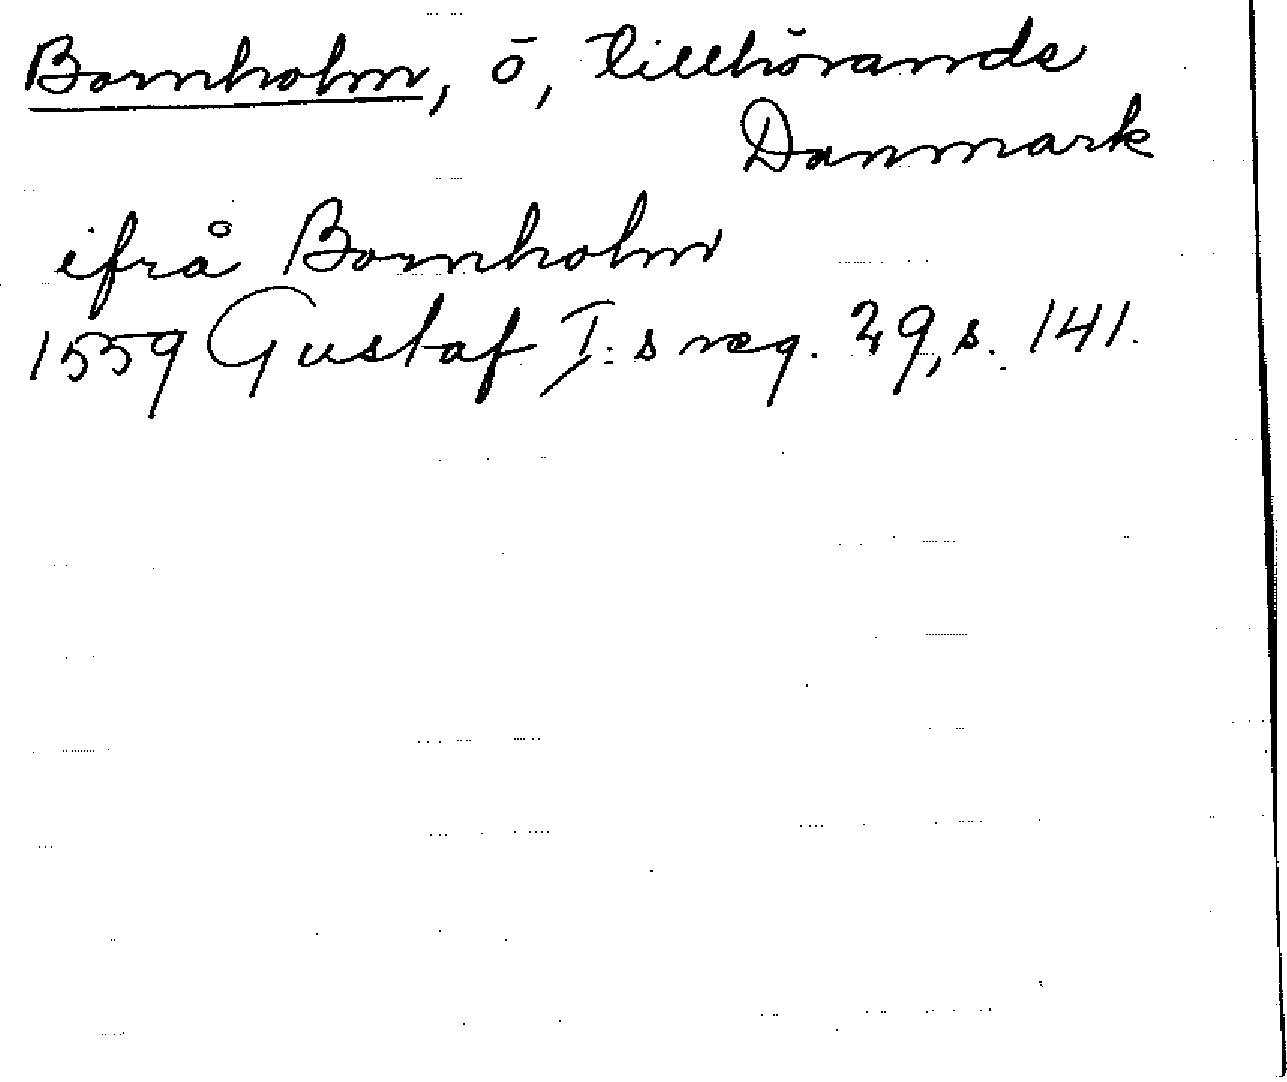 Bornholm, ö, tillhörande
Danmark
ifrå Bornholm
1559 Gustaf I:s reg. 29, s. 141.